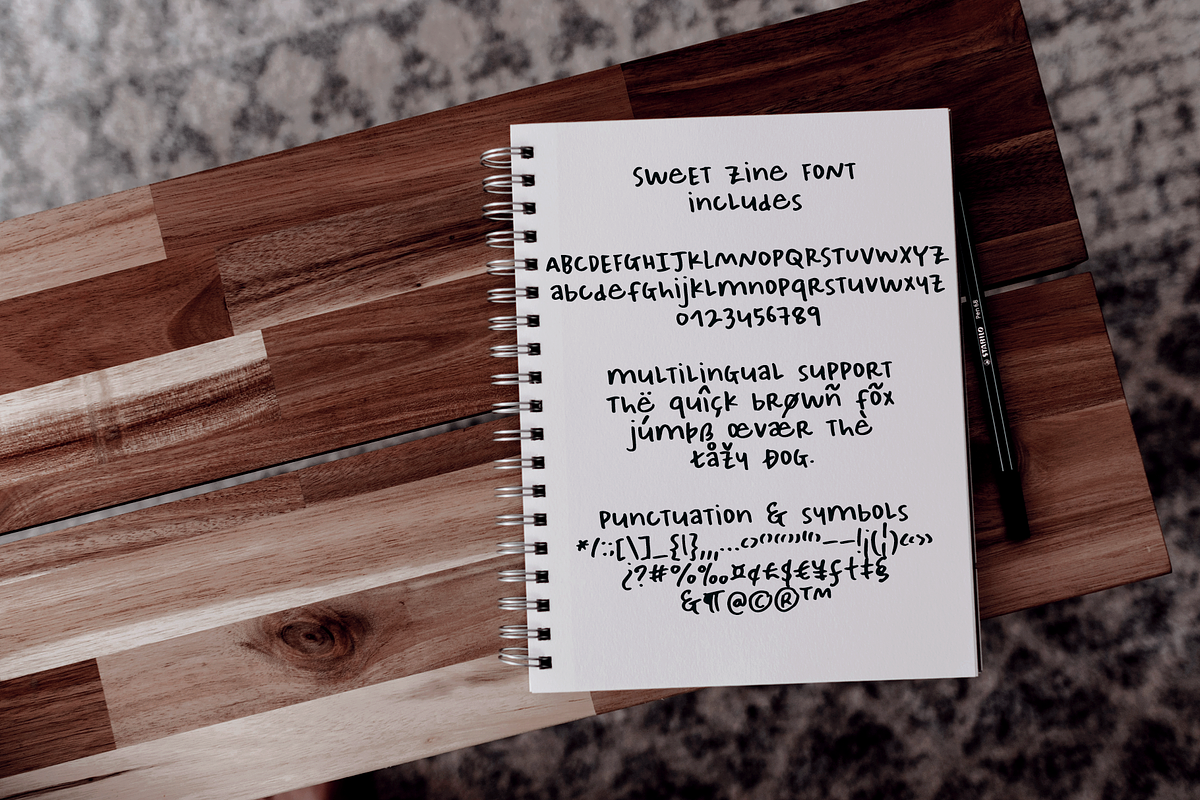 Sweet Zine Font
includes
ABCDEFGHIJKLMNOPQRSTUVWXYZ
abcdefghijklmnopqrstuvwxyz
0123456789
Multilingual support
Thë quîçk brøwñ fõx
júmpß œvær Thè
łåžy ÐOG.
Punctuation & symbols
*/:;[\]_{|},,,...‹›“”‘’–—!¡(¦)«»
¿?#%‰¤¢£$€¥ƒ†‡§
&¶@©®™
STABILO Pen 68